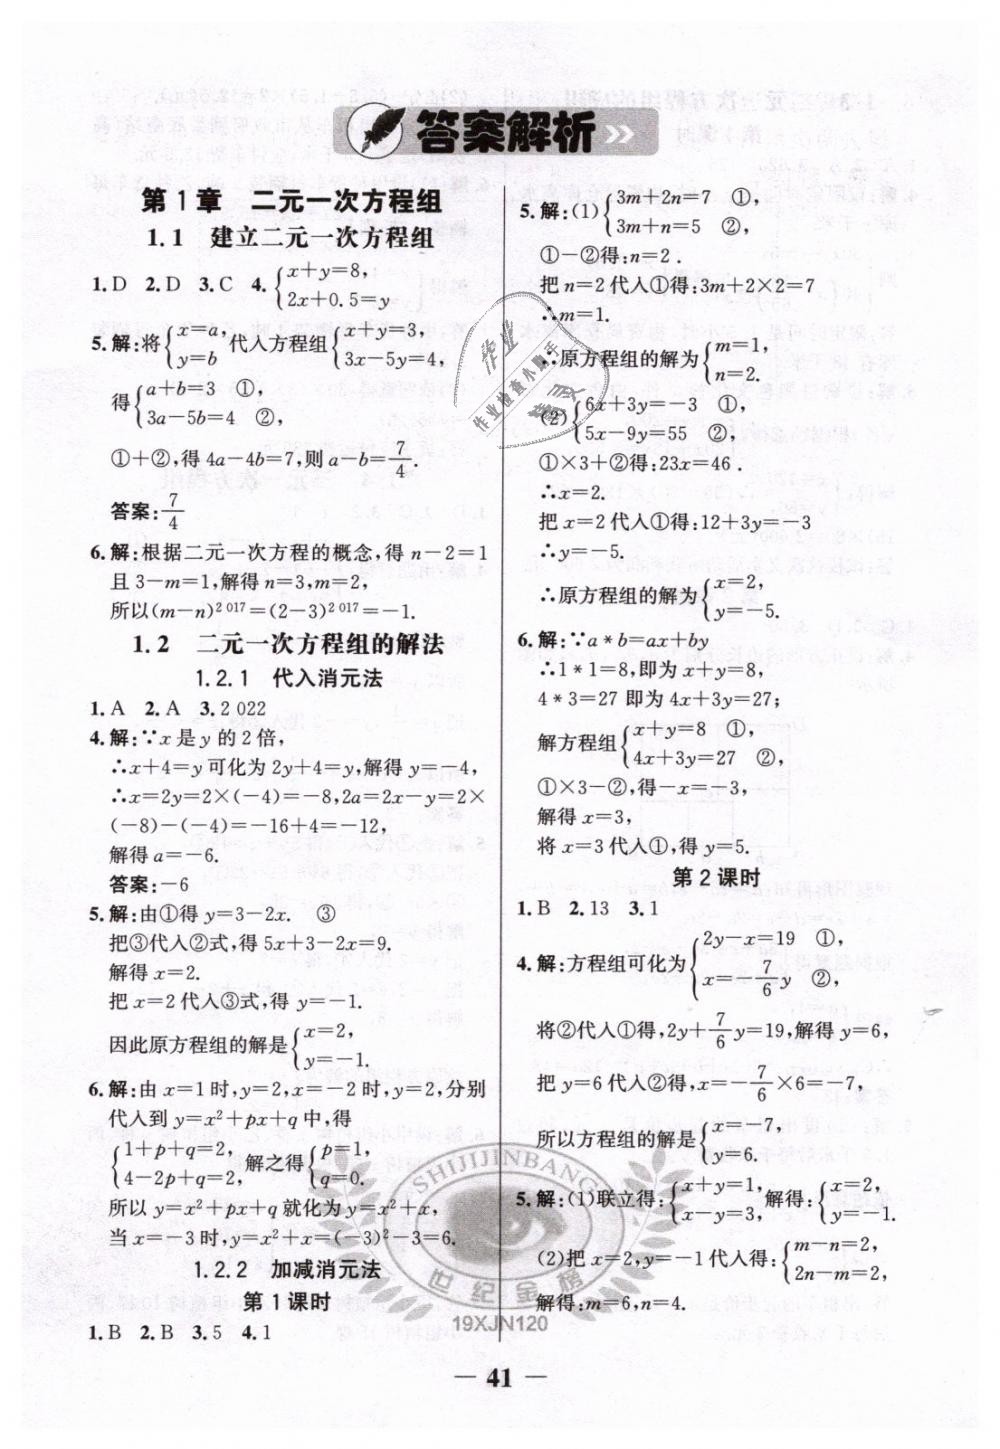 答案解析
第1章 二元一次方程组
1.1 建立二元一次方程组
1.D 2.D 3.C 4.{x+y=8,
2x+0.5=y
5.解:将{x=a, 代入方程组{x+y=3,
y=b 3x-5y=4,
得{a+b=3 ①,
3a-5b=4 ②,
①+②,得4a-4b=7,则a-b=7/4.
答案:7/4
6.解:根据二元一次方程的概念,得n-2=1
且3-m=1,解得n=3,m=2,
所以(m-n)^2 017=(2-3)^2 017=-1.
1.2 二元一次方程组的解法
1.2.1 代入消元法
1.A 2.A 3.2 022
4.解:∵x是y的2倍,
∴x+4=y可化为2y+4=y,解得y=-4,
∴x=2y=2×(-4)=-8,2a=2x-y=2×
(-8)-(-4)=-16+4=-12,
解得a=-6.
答案:-6
5.解:由①得y=3-2x. ③
把③代入②式,得5x+3-2x=9.
解得x=2.
把x=2代入③式,得y=-1.
因此原方程组的解是{x=2,
y=-1.
6.解:由x=1时,y=2,x=-2时,y=2,分别
代入到y=x²+px+q中,得
{1+p+q=2, 解之得{p=1,
4-2p+q=2, q=0.
所以y=x²+px+q就化为y=x²+x,
当x=-3时,y=x²+x=(-3)²-3=6.
1.2.2 加减消元法
第1课时
1.B 2.B 3.5 4.1
5.解:(1){3m+2n=7 ①,
3m+n=5 ②,
①-②得:n=2.
把n=2代入①得:3m+2×2=7
∴m=1.
∴原方程组的解为{m=1,
n=2.
(2){6x+3y=-3 ①,
5x-9y=55 ②,
①×3+②得:23x=46.
∴x=2.
把x=2代入①得:12+3y=-3
∴y=-5.
∴原方程组的解为{x=2,
y=-5.
6.解:∵a*b=ax+by
∴1*1=8,即为x+y=8,
4*3=27即为4x+3y=27;
解方程组{x+y=8 ①,
4x+3y=27 ②,
①×3-②,得-x=-3,
解得x=3,
将x=3代入①,得y=5.
第2课时
1.B 2.13 3.1
4.解:方程组可化为{2y-x=19 ①,
x=-7/6y ②,
将②代入①得,2y+7/6y=19,解得y=6,
把y=6代入②得,x=-7/6×6=-7,
所以方程组的解是{x=-7,
y=6.
5.解:(1)联立得:{x+y=1, 解得:{x=2,
x-y=3, y=-1.
(2)把x=2,y=-1代入得:{m-n=2,
2n-m=2,
解得:m=6,n=4.
作业
作业检查小助手
SHIJIJINBANG
世纪金榜
19XJN120
— 41 —